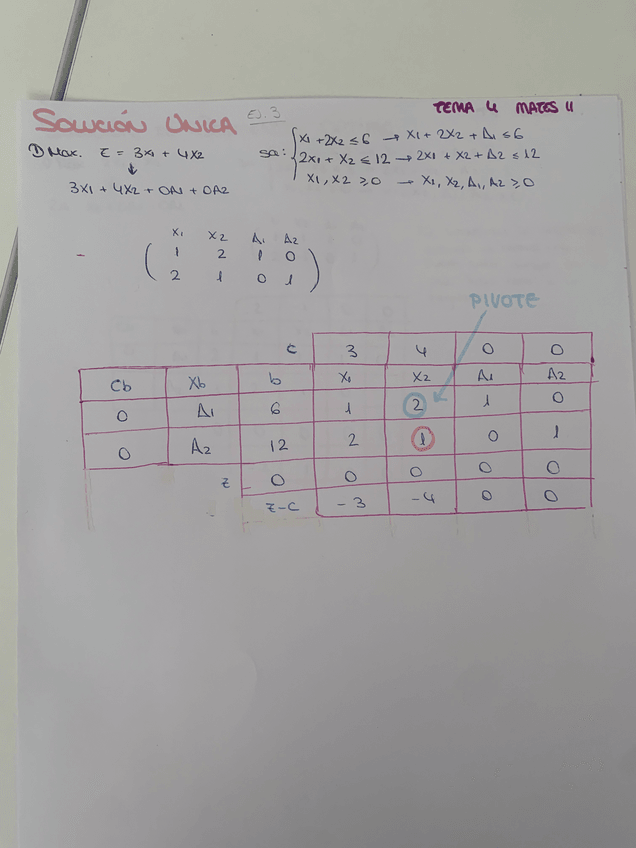 SOLUCIÓN UNICA EJ. 3 TEMA 4 MATES II
1) Max. Z = 3x1 + 4x2 sa: x1 + 2x2 ≤ 6 → x1 + 2x2 + Δ1 ≤ 6
2x1 + x2 ≤ 12 → 2x1 + x2 + Δ2 ≤ 12
3x1 + 4x2 + 0Δ1 + 0Δ2 x1, x2 ≥ 0 → x1, x2, Δ1, Δ2 ≥ 0
x1 x2 Δ1 Δ2
- 1 2 1 0
2 1 0 1
PIVOTE
c 3 4 0 0
Cb Xb b x1 x2 Δ1 Δ2
0 Δ1 6 1 2 1 0
0 Δ2 12 2 1 0 1
Z 0 0 0 0 0
Z-C -3 -4 0 0